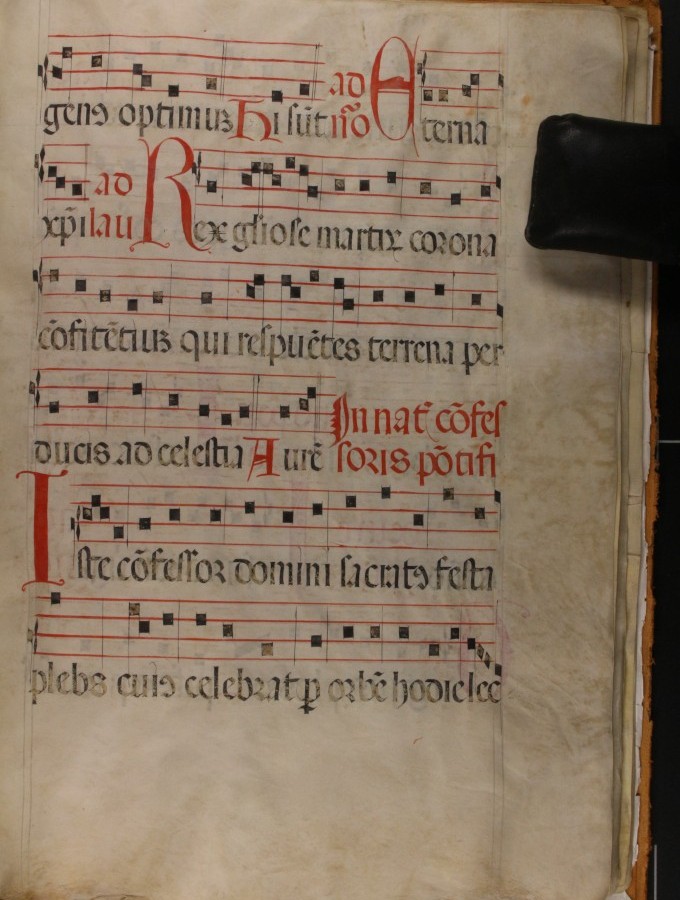 gens optimus Hi sūt ad nr̄o Eterna
xp̄i ad lau Rex gl̄iose martirꝝ corona
cōfitētius qui respuētes terrena per
ducis ad celestia Aurē In nat̄ cōfes
soris pōtifi
Iste cōfessor domini sacratꝯ festa
plebs cuiꝯ celebrat ꝑ orbē hodie lee